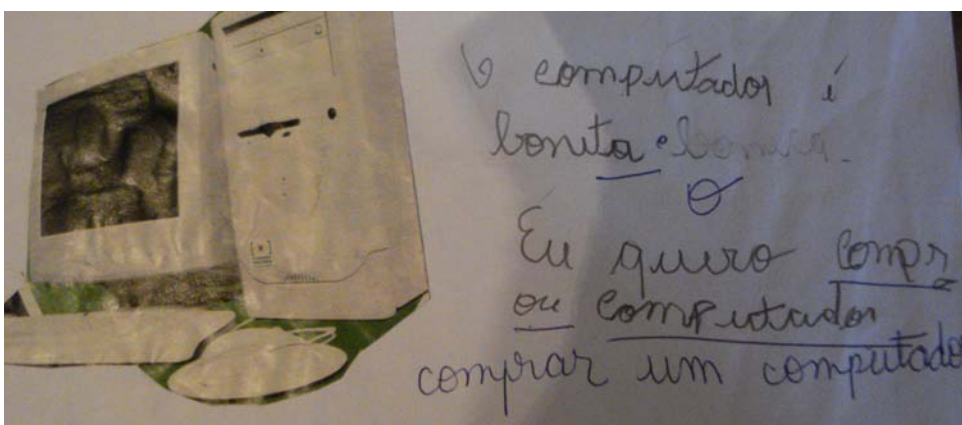 O computador é
bonita.
O
Eu quero compr
ou computador
comprar um computado